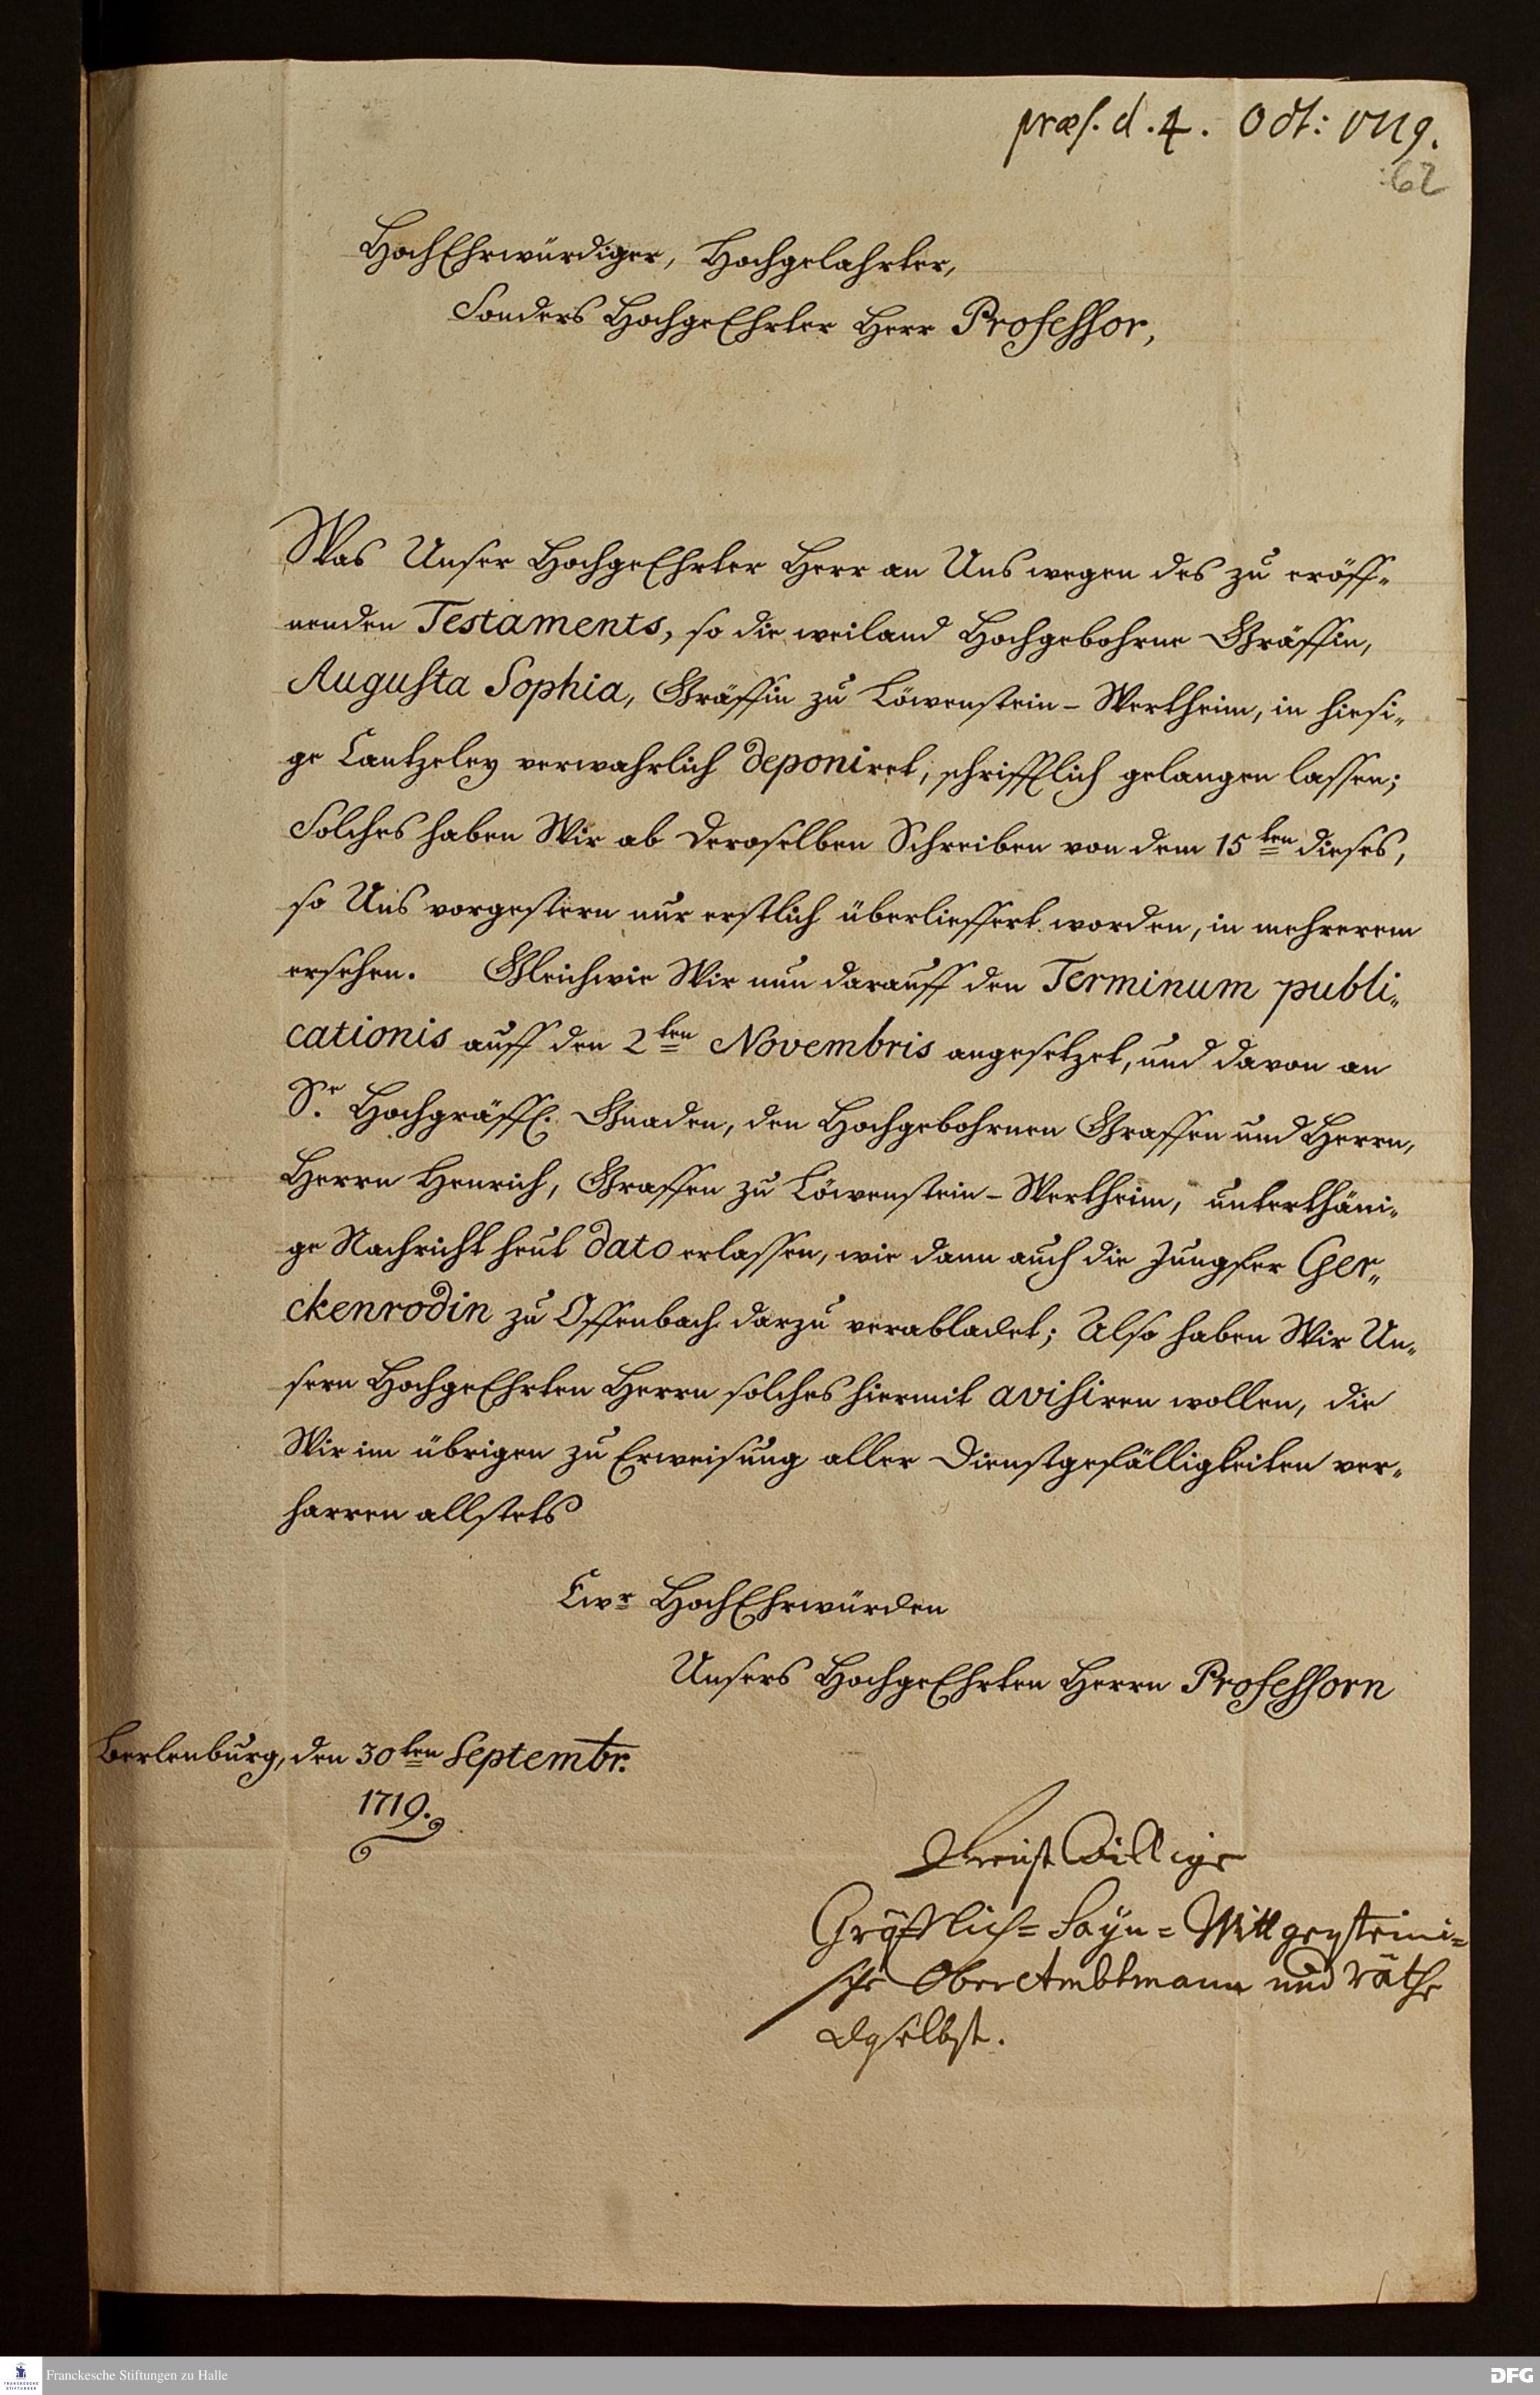 præs. d. 4. Oct: 1719.
62
HochEhrwürdiger, Hochgelahrter,
Sonders HochgeEhrter Herr Professor,
Was Unser HochgeEhrter Herr an Uns wegen des zu eröff-
nenden Testaments, so die weiland Hochgebohrne Gräffin,
Augusta Sophia, Gräffin zu Löwenstein-Wertheim, in hiesi-
ge Cantzeley verwahrlich deponiret, schrifftlich gelangen lassen;
Solches haben Wir ab Deroselben Schreiben von dem 15ten dieses,
so Uns vorgestern nur erstlich überlieffert worden, in mehrerem
ersehen. Gleichwie Wir nun darauff den Terminum publi-
cationis auff den 2ten Novembris angesetzet, und davon an
Sr. Hochgräffl. Gnaden, den Hochgebohrnen Graffen und Herrn,
Herrn Henrich, Graffen zu Löwenstein-Wertheim, unterthäni-
ge Nachricht heut dato erlassen, wie dann auch die Jungfer Ger-
ckenrodin zu Offenbach darzu verabladet; Also haben Wir Un-
sern HochgeEhrten Herrn solches hiermit avisiren wollen, die
Wir im übrigen zu Erweisung aller Dienstgefälligkeiten ver-
harren allstets
Ewr HochEhrwürden
Unsers HochgeEhrten Herrn Professorn
Berlenburg, den 30ten Septembr.
1719.
Dienst Willige
Gräfflich-Sayn-Wittgensteini-
sche OberAmbtmann und Räthe
daselbst.
Franckesche Stiftungen zu Halle
DFG